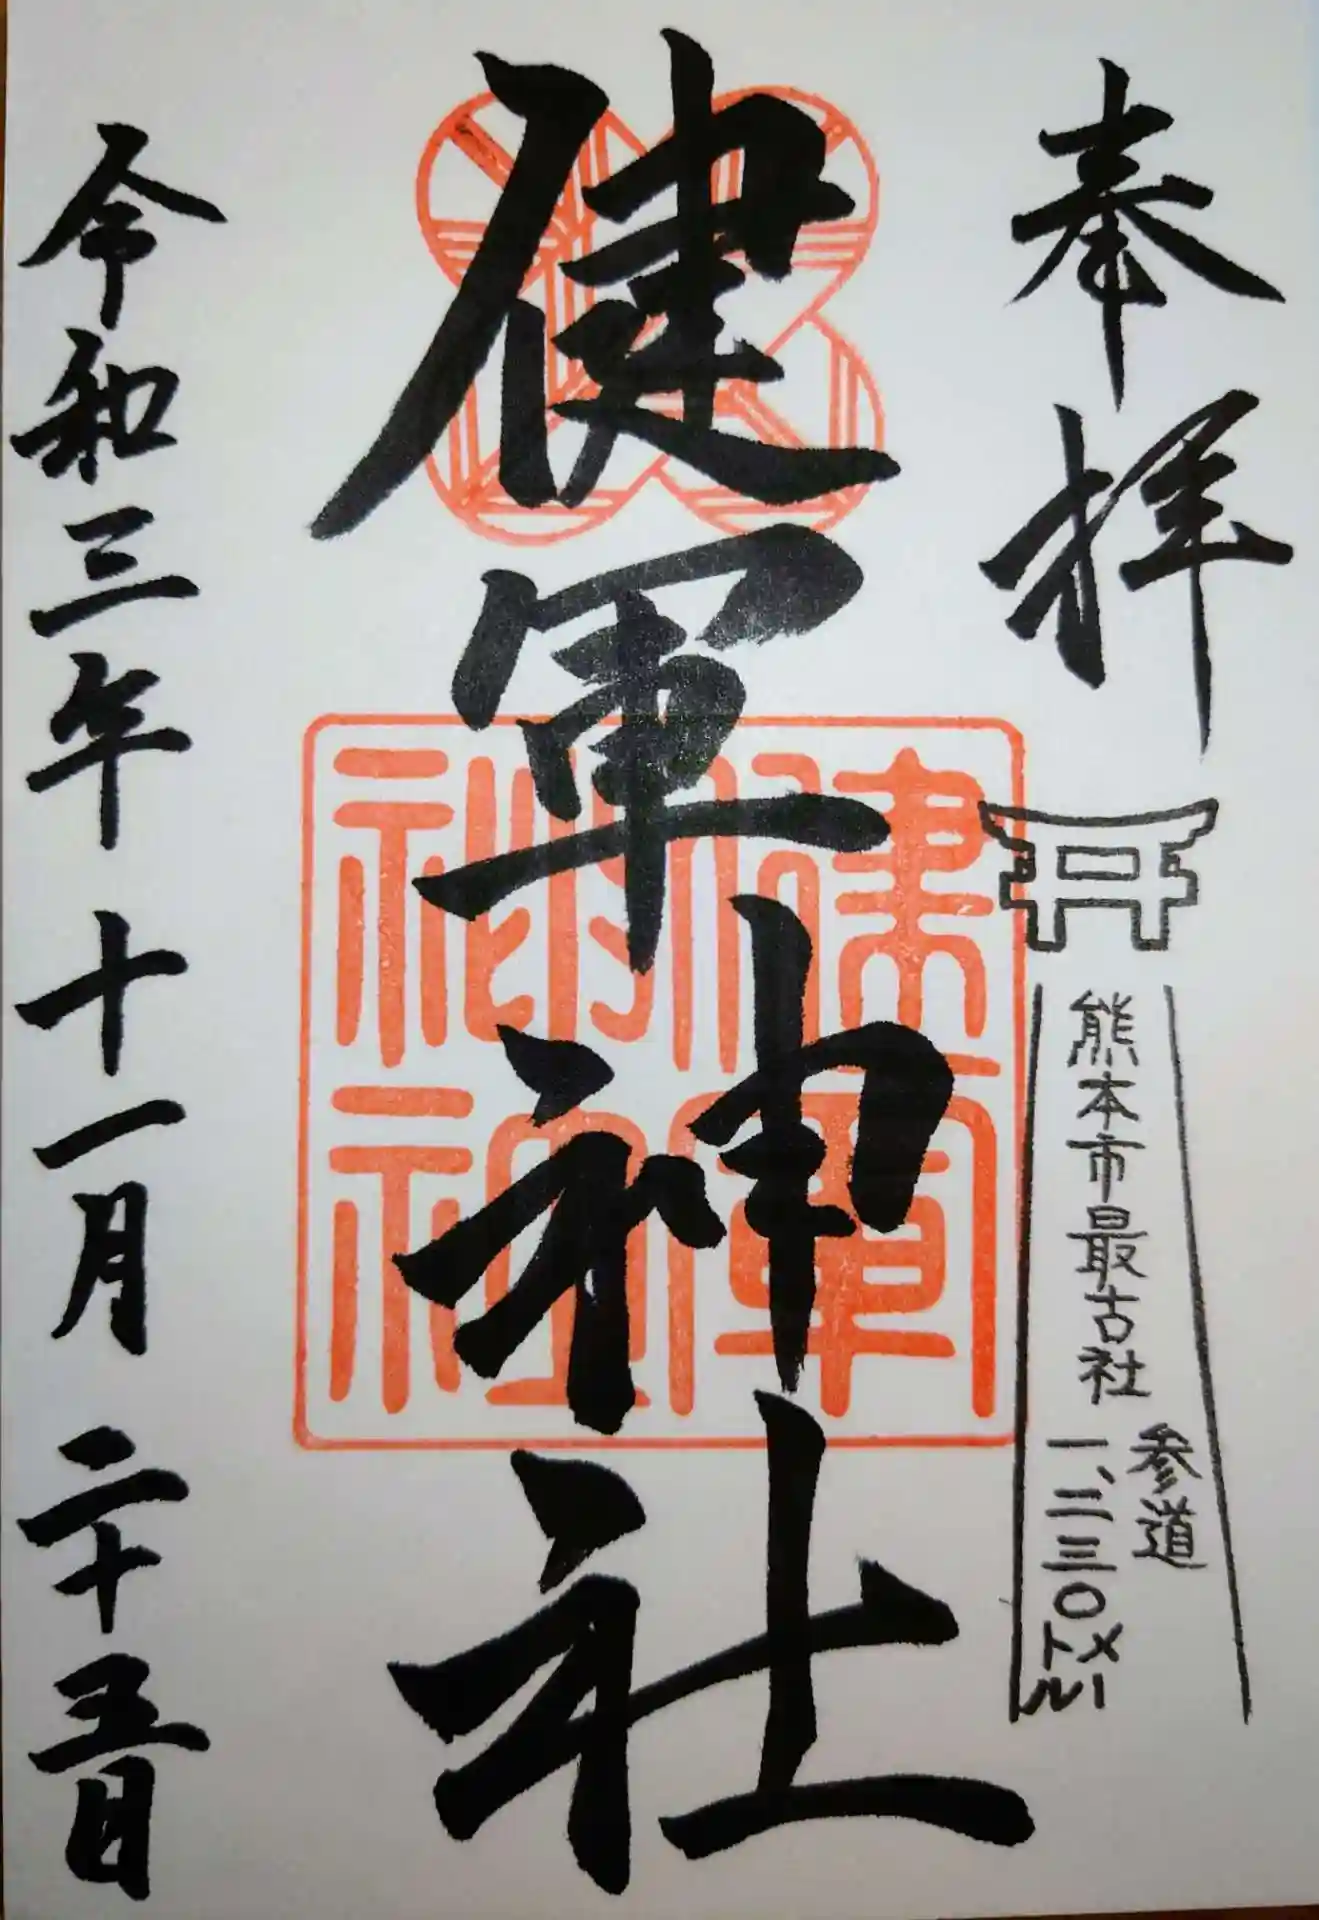 奉拝
熊本市最古社
参道
一、二三〇メートル
健軍神社
健軍
神社
令和三年十一月二十五日